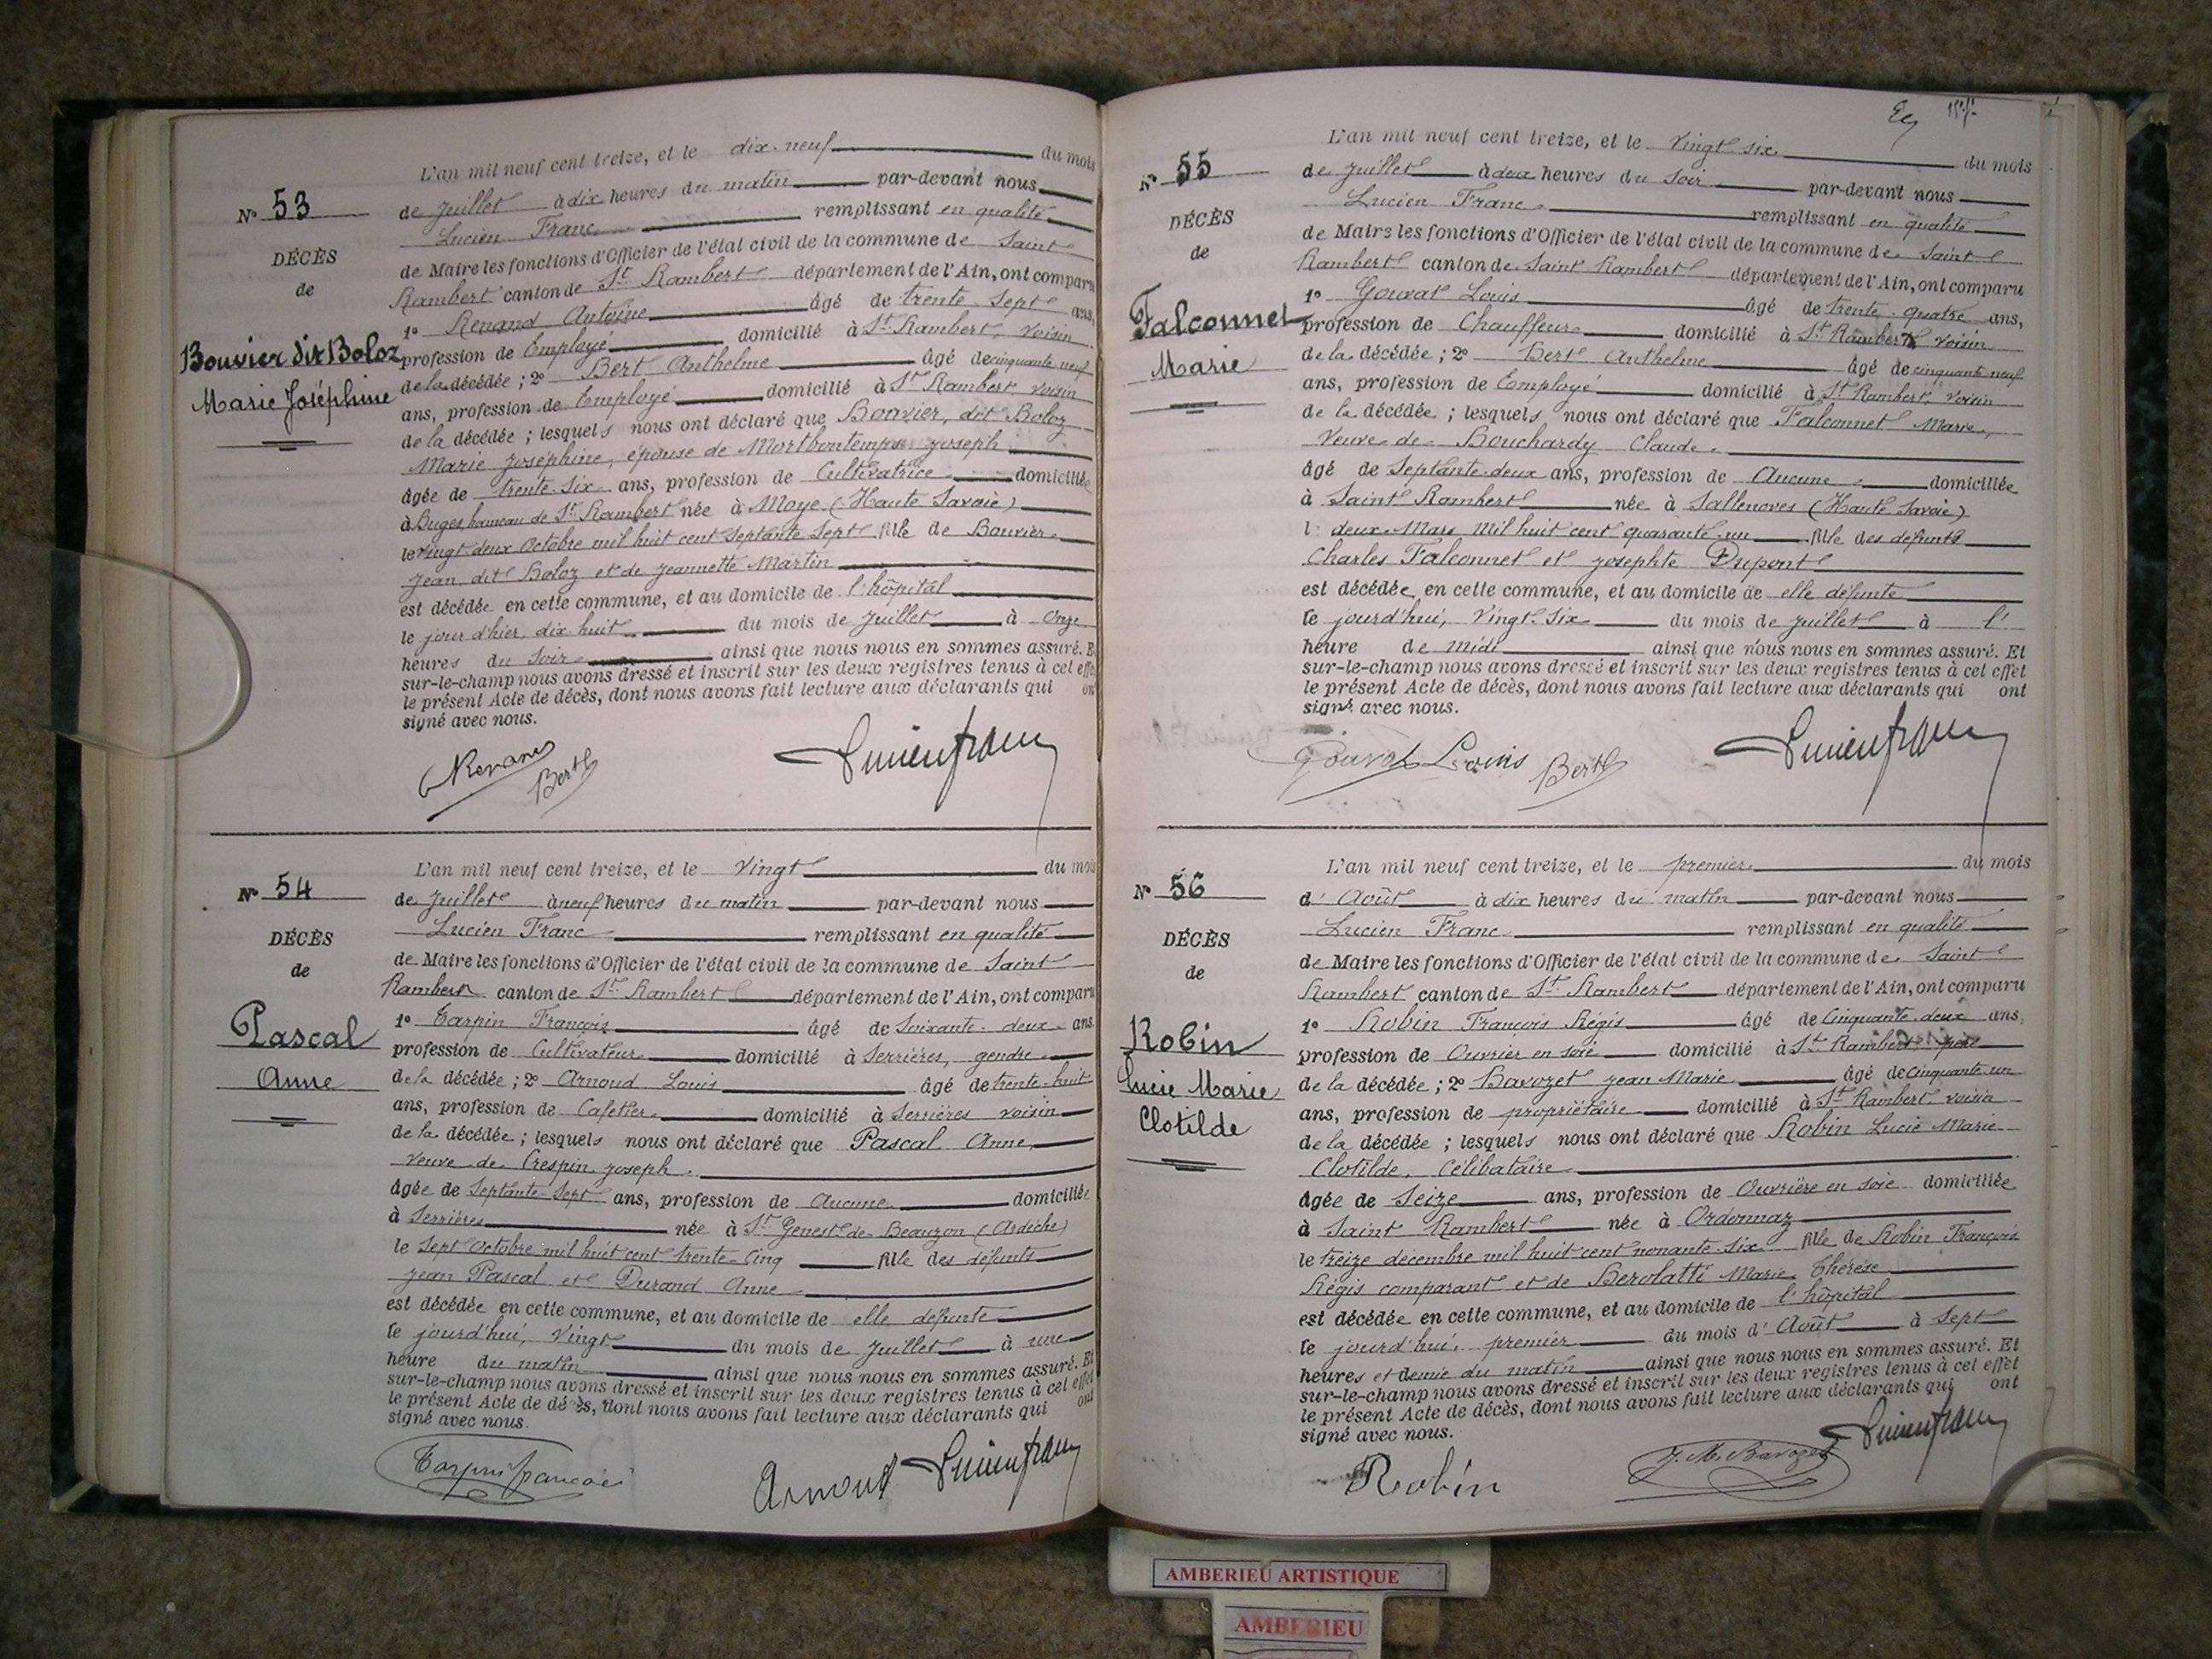 L'an mil neuf cent treize, et le dix-neuf du mois
N° 53
de Juillet à dix heures du matin par-devant nous
Lucien Franc remplissant en qualité
DÉCÈS
de Maire les fonctions d'Officier de l'état civil de la commune de Saint
de
Rambert canton de St Rambert département de l'Ain, ont comparu
1° Renand Antoine âgé de trente-sept ans,
Bouvier dit Boloz
profession de Employé domicilié à St Rambert, voisin
Marie Joséphine
de la décédée ; 2° Bert Anthelme âgé de cinquante neuf
ans, profession de Employé domicilié à St Rambert, voisin
de la décédée ; lesquels nous ont déclaré que Bouvier, dit Boloz
Marie Joséphine, épouse de Mortbontemps Joseph
âgée de trente-six ans, profession de Cultivatrice domiciliée
à Buges, hameau de St Rambert née à Moye (Haute Savoie)
le vingt deux Octobre mil huit cent septante sept fille de Bouvier
Jean dit Boloz et de Jeannette Martin
est décédée en cette commune, et au domicile de l'hôpital
le jour d'hier, dix huit du mois de Juillet à onze
heures du soir ainsi que nous nous en sommes assuré. Et
sur-le-champ nous avons dressé et inscrit sur les deux registres tenus à cet effet
le présent Acte de décès, dont nous avons fait lecture aux déclarants qui ont
signé avec nous.
Bert
Lucien franc
L'an mil neuf cent treize, et le vingt du mois
N° 54
de Juillet à neuf heures du matin par-devant nous
Lucien Franc remplissant en qualité
DÉCÈS
de Maire les fonctions d'Officier de l'état civil de la commune de Saint
de
Rambert canton de St Rambert département de l'Ain, ont comparu
Pascal
1° Tarpin François âgé de soixante-deux ans.
profession de Cultivateur domicilié à Serrières, gendre
Anne
de la décédée ; 2° Arnoud Louis âgé de trente-huit
ans, profession de Cafetier domicilié à Serrières voisin
de la décédée ; lesquels nous ont déclaré que Pascal Anne,
veuve de Crespin Joseph
âgée de septante-sept ans, profession de aucune domiciliée
à Serrières née à St Genest-de-Beauzon (Ardèche)
le sept Octobre mil huit cent trente-cinq fille des défunts
Jean Pascal et Durand Anne
est décédée en cette commune, et au domicile de elle défunte
le jourd'hui, vingt du mois de Juillet à une
heure du matin ainsi que nous nous en sommes assuré. Et
sur-le-champ nous avons dressé et inscrit sur les deux registres tenus à cet effet
le présent Acte de décès, dont nous avons fait lecture aux déclarants qui ont
signé avec nous.
Tarpin françois
Arnoud
Lucien franc
L'an mil neuf cent treize, et le vingt-six du mois
N° 55
de Juillet à deux heures du soir par-devant nous
Lucien Franc remplissant en qualité
DÉCÈS
de Maire les fonctions d'Officier de l'état civil de la commune de Saint
de
Rambert canton de Saint Rambert département de l'Ain, ont comparu
1° Gouvat Louis âgé de trente-quatre ans,
Falconnet
profession de Chauffeur domicilié à St Rambert voisin
Marie
de la décédée ; 2° Bert Anthelme âgé de cinquante-neuf
ans, profession de Employé domicilié à St Rambert, voisin
de la décédée ; lesquels nous ont déclaré que Falconnet Marie,
veuve de Bouchardy Claude
âgé de septante-deux ans, profession de Aucune domiciliée
à Saint Rambert née à Sallenoves (Haute Savoie)
l deux Mars mil huit cent quarante-un fille des défunts
Charles Falconnet et Josephte Dupont
est décédée en cette commune, et au domicile de elle défunte
le jourd'hui, vingt-six du mois de Juillet à l'
heure de midi ainsi que nous nous en sommes assuré. Et
sur-le-champ nous avons dressé et inscrit sur les deux registres tenus à cet effet
le présent Acte de décès, dont nous avons fait lecture aux déclarants qui ont
signé avec nous.
Gouvat Louis
Bert
Lucien franc
L'an mil neuf cent treize, et le premier du mois
N° 56
d'Août à dix heures du matin par-devant nous
Lucien Franc remplissant en qualité
DÉCÈS
de Maire les fonctions d'Officier de l'état civil de la commune de Saint
de
Rambert canton de St Rambert département de l'Ain, ont comparu
Robin
1° Robin François Régis âgé de cinquante-deux ans,
profession de Ouvrier en soie domicilié à St Rambert, père
Lucie Marie
de la décédée ; 2° Bavozet Jean Marie âgé de cinquante un
Clotilde
ans, profession de propriétaire domicilié à St Rambert, voisin
de la décédée ; lesquels nous ont déclaré que Robin Lucie Marie
Clotilde, Célibataire
âgée de seize ans, profession de Ouvrière en soie domiciliée
à Saint Rambert née à Ordonnaz
le treize décembre mil huit cent nonante-six fille de Robin François
Régis comparant et de Berolatti Marie Thérèse
est décédée en cette commune, et au domicile de l'hôpital
le jourd'hui, premier du mois d'Août à sept
heures et demie du matin ainsi que nous nous en sommes assuré. Et
sur-le-champ nous avons dressé et inscrit sur les deux registres tenus à cet effet
le présent Acte de décès, dont nous avons fait lecture aux déclarants qui ont
signé avec nous.
Robin
J. M. Bavozet
Lucien franc
AMBERIEU ARTISTIQUE
AMBERIEU